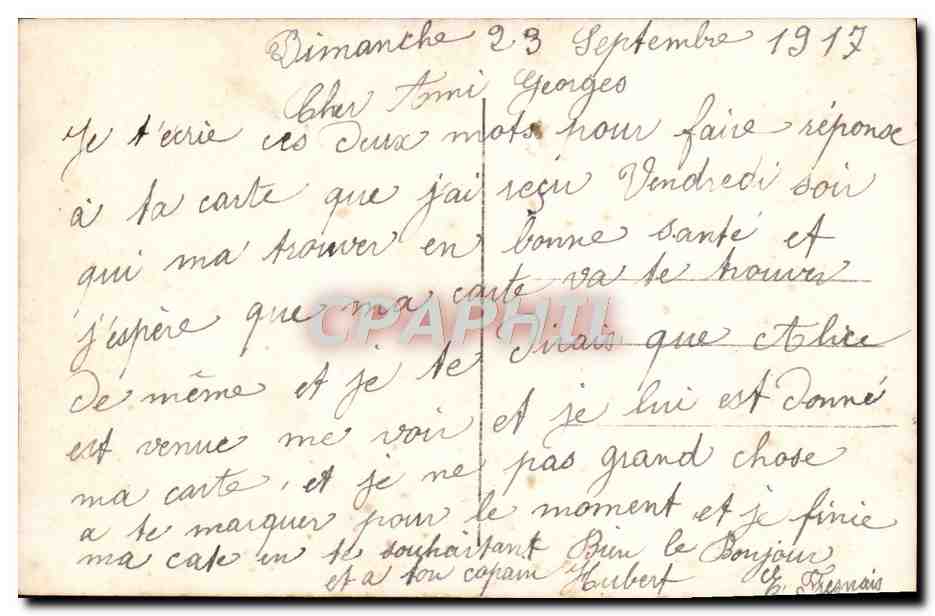 Dimanche 23 Septembre 1917
Cher Ami Georges
Je t'écrie ces deux mots pour faire réponse
à ta carte que j'ai reçu Vendredi soir
qui ma trouver en bonne santé et
j'espère que ma carte va te trouver
CPAPHIL
de même et je te dirais que Alice
est venue me voir et je lui est donné
ma carte, et je ne pas grand chose
a te marquer pour le moment et je finie
ma cate en te souhaitant Bien le Bonjour
et a ton copain Hubert
Fresnais